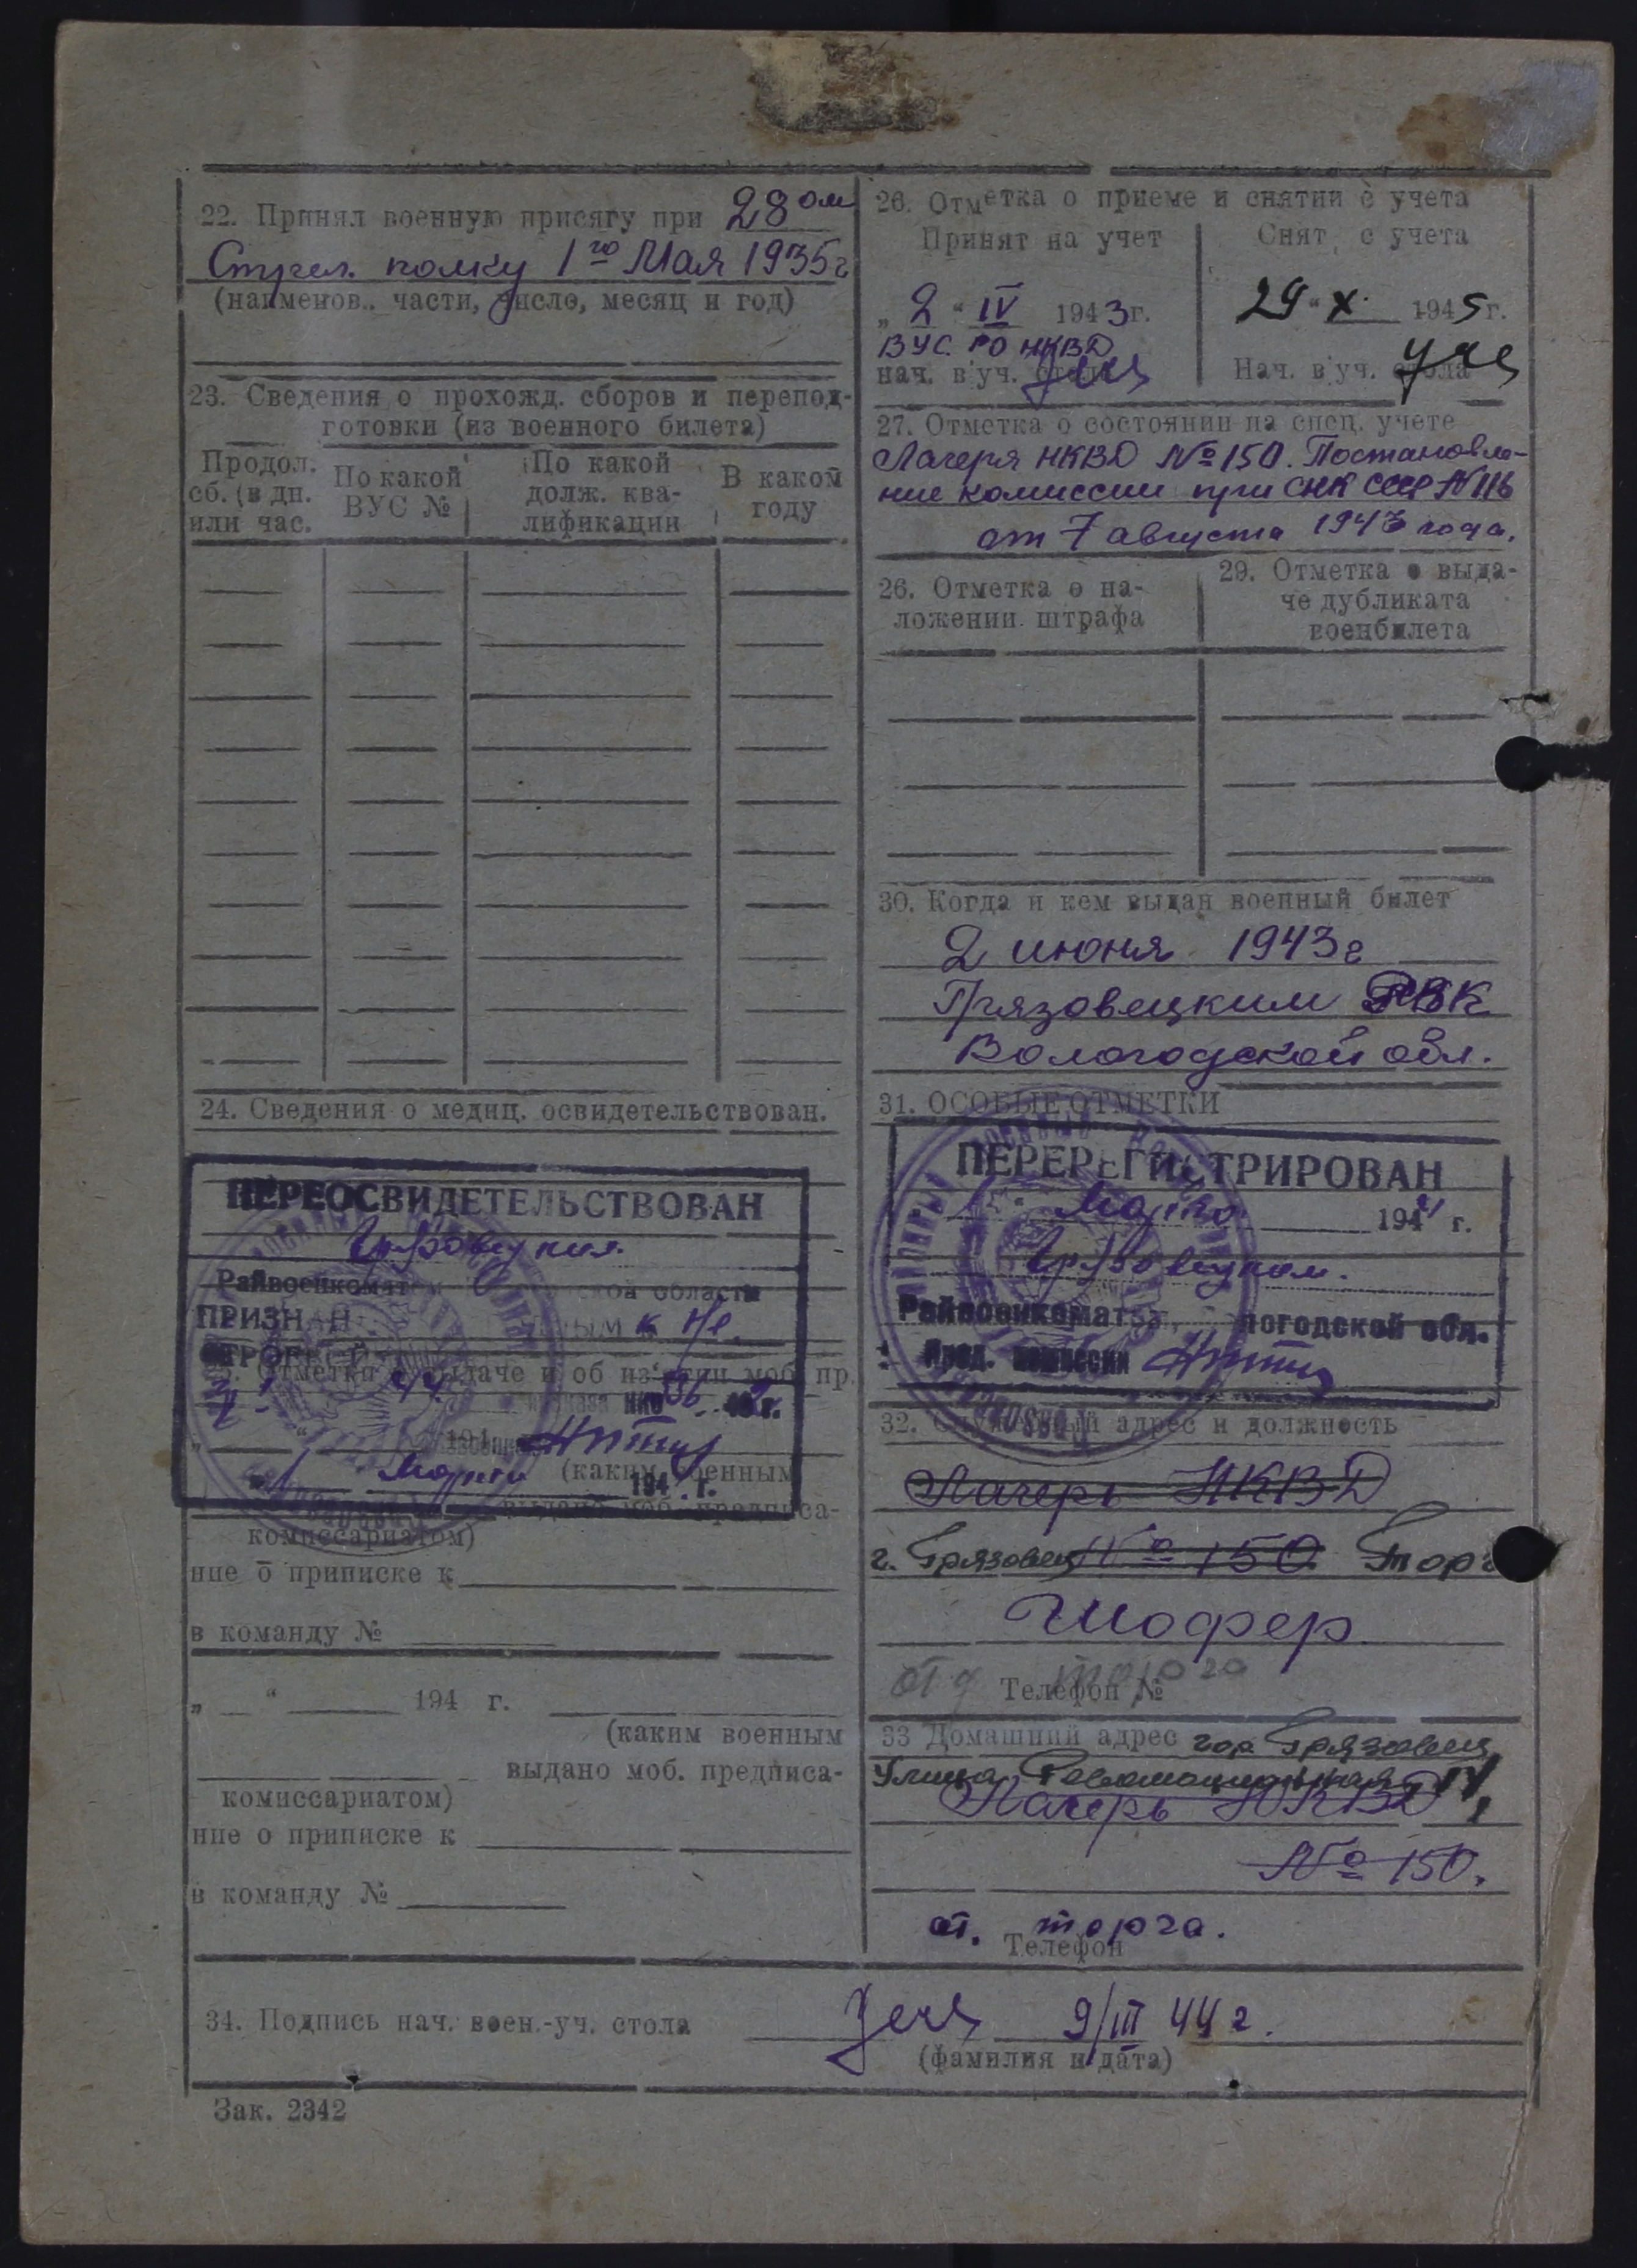 22. Принял военную присягу при 28ом
Стрел. полку 1го Мая 1935г
(наименов.. части, число, месяц и год)
23. Сведения о прохожд. сборов и перепод-
готовки (из военного билета)
Продол. сб. (в дн. или час.
По какой ВУС №
По какой долж. ква-лификации
В каком году
24. Сведения о медиц. освидетельствован.
ПЕРЕОСВИДЕТЕЛЬСТВОВАН
Райвоенкоматом области
ПРИЗНАН
Отметки о выдаче и об из'ятии моб. пр.
Марта 194 г.
(каким военным
выдано моб. предписа-
комиссариатом)
ние о приписке к
в команду №
„ “ 194 г.
(каким военным
выдано моб. предписа-
комиссариатом)
ние о приписке к
в команду №
26. Отметка о приеме и снятии с учета
Принят на учет
Снят с учета
„2“ IV 1943г.
29“ X 1945г.
ВУС РО НКВД
нач. в'уч. стола
Нач. в'уч. стола
27. Отметка о состоянии на спец. учете
Лагеря НКВД № 150. Постановле-
ние комиссии при СНК СССР №116
от 7 августа 1943 года.
26. Отметка о на-
ложении штрафа
29. Отметка о выда-
че дубликата
военбилета
30. Когда и кем выдан военный билет
2 июня 1943г
Грязовецким РВК
Вологодской обл.
31. ОСОБЫЕ ОТМЕТКИ
ПЕРЕРЕГИСТРИРОВАН
Марта 1944 г.
Райвоенкоматом, Вологодской обл.
Пред. комиссии
32. Служебный адрес и должность
Лагерь НКВД
г. Грязовец № 150 Торг
Шофер
от торга
Телефон №
33 Домашний адрес гор Грязовец
Улица Революционная
Лагерь НКВД
№ 150.
от. торга.
Телефон
34. Подпись нач. воен.-уч. стола 9/III 44 г.
(фамилия и дата)
Зак. 2342